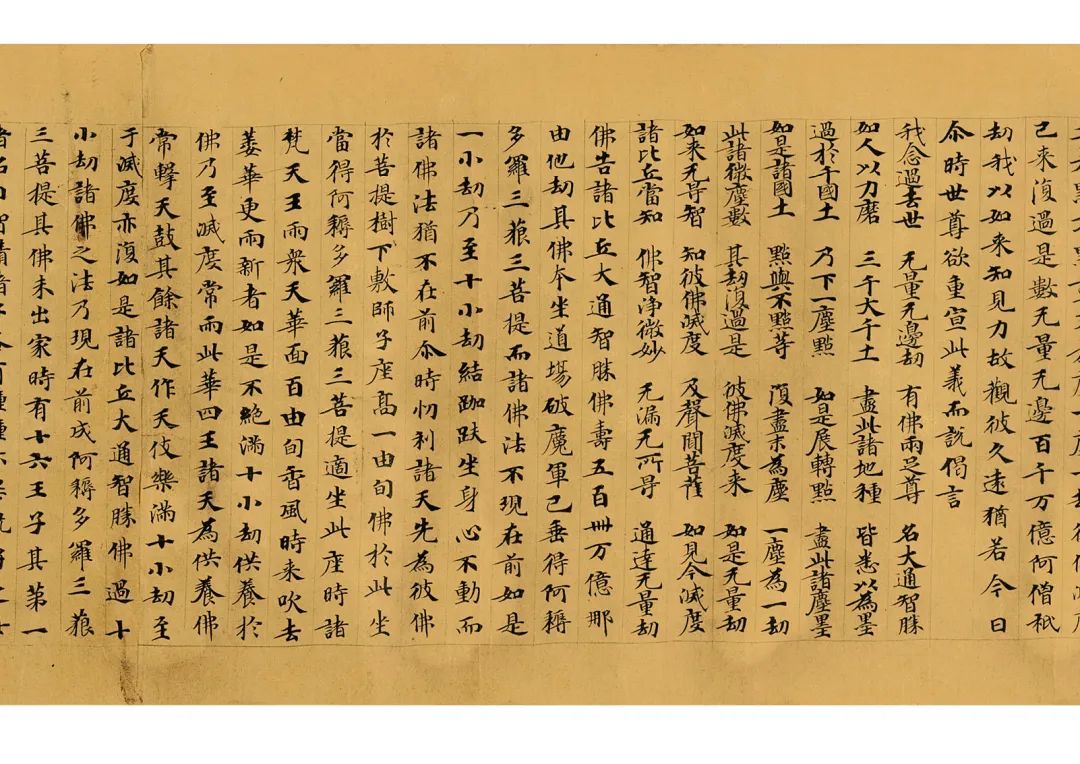 已来復過是數无量无邊百千万億阿僧祇
劫我以如来知見力故觀彼久遠猶若今日
尒時世尊欲重宣此義而說偈言
我念過去世 无量无邊劫 有佛兩足尊 名大通智勝
如人以力磨 三千大千土 盡此諸地種 皆悉以為墨
過於千國土 乃下一塵點 如是展轉點 盡此諸塵墨
如是諸國土 點與不點等 復盡末為塵 一塵為一劫
此諸微塵數 其劫復過是 彼佛滅度来 如是无量劫
如来无㝵智 知彼佛滅度 及聲聞菩薩 如見今滅度
諸比丘當知 佛智淨微妙 无漏无所㝵 通達无量劫
佛告諸比丘大通智勝佛壽五百卌万億那
由他劫其佛夲坐道場破魔軍已垂得阿耨
多羅三藐三菩提而諸佛法不現在前如是
一小劫乃至十小劫結跏趺坐身心不動而
諸佛法猶不在前尒時忉利諸天先為彼佛
於菩提樹下敷師子座高一由旬佛於此坐
當得阿耨多羅三藐三菩提適坐此座時諸
梵天王雨衆天華面百由旬香風時来吹去
萎華更雨新者如是不絶滿十小劫供養於
佛乃至滅度常雨此華四王諸天為供養佛
常擊天鼓其餘諸天作天伎樂滿十小劫至
于滅度亦復如是諸比丘大通智勝佛過十
小劫諸佛之法乃現在前成阿耨多羅三藐
三菩提其佛未出家時有十六王子其第一